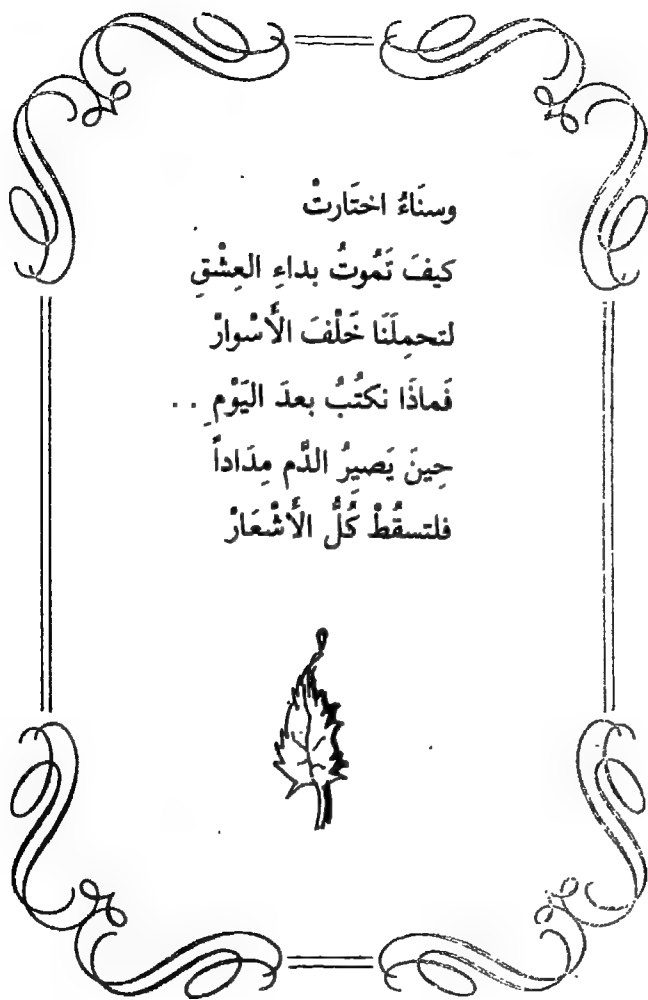 وسنَاءُ اختَارتْ
كيفَ تَمُوتُ بداءِ العِشْقِ
لتحمِلَنَا خَلْفَ الأَسْوارْ
فَماذَا نكتُبُ بعدَ اليَوْمِ . .
حِينَ يَصيرُ الدَّم مِدَاداً
فلتسقُطْ كُلُّ الأَشْعَارْ